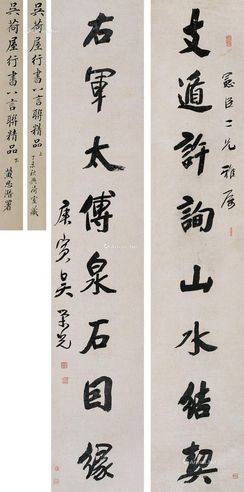 支遁許詢山水結契
臣二兄雅屬
右軍太傅泉石囙緣
庚寅吳榮光
吳荷屋行書八言聯精品 上
丁未秋
吳荷屋行書八言聯精品 下
署